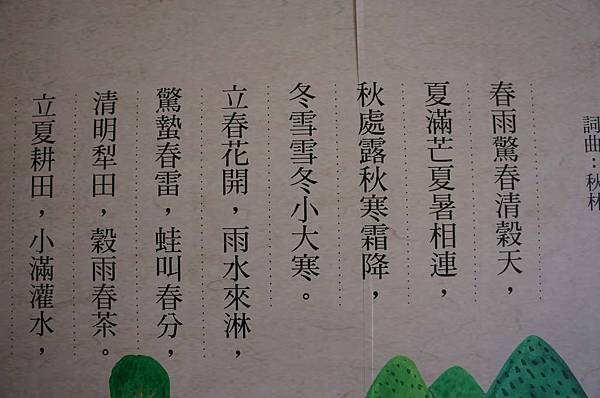 詞曲：秋林
春雨驚春清穀天，
夏滿芒夏暑相連，
秋處露秋寒霜降，
冬雪雪冬小大寒。
立春花開，雨水來淋，
驚蟄春雷，蛙叫春分，
清明犁田，穀雨春茶。
立夏耕田，小滿灌水，